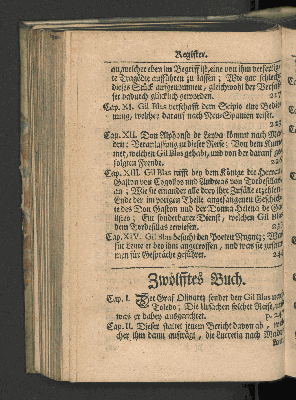 Register.
an, welcher eben im Begriff ist, eine von ihm verfertig-
te Tragödie aufführen zu lassen; Wie gar schlecht
dieses Stück aufgenommen, gleichwohl der Verfas-
ser dadurch glücklich geworden. 217
Cap. XI. Gil Blas verschafft dem Scipio eine Bedie-
nung, welcher darauf nach Neu-Spanien reiset.
225
Cap. XII. Don Alphonso de Leyva kommt nach Ma-
drit: Veranlassung zu dieser Reise; Von dem Kum-
mer, welchen Gil Blas gehabt, und von der darauf ge-
folgten Freude.
Cap. XIII. Gil Blas trifft bey dem Könige den Herrn
Gaston von Cogollos und Andreas von Tordesillas
an; Wie sie einander alle drey ihre Zufälle erzehlen;
Ende der im vorigen Theile angefangenen Geschich-
te des Don Gaston und der Donna Helena de Ga-
listeo; Ein sonderbarer Dienst, welchen Gil Blas
dem Tordesillas erwiesen.
Cap. XIV. Gil Blas besucht den Poeten Nugnez; Was
für Leute er bey ihm angetroffen, und was sie zusam-
men für Gespräche geführet. 244
Zwölfftes Buch.
Cap. I. Der Graf Olivarez sendet den Gil Blas nach
Toledo; Die Ursachen solcher Reise, und
was er dabey ausgerichtet. p. 247
Cap. II. Dieser stattet jenem Bericht davon ab, wel-
cher ihm dann aufträgt, die Lucretia nach Madrit